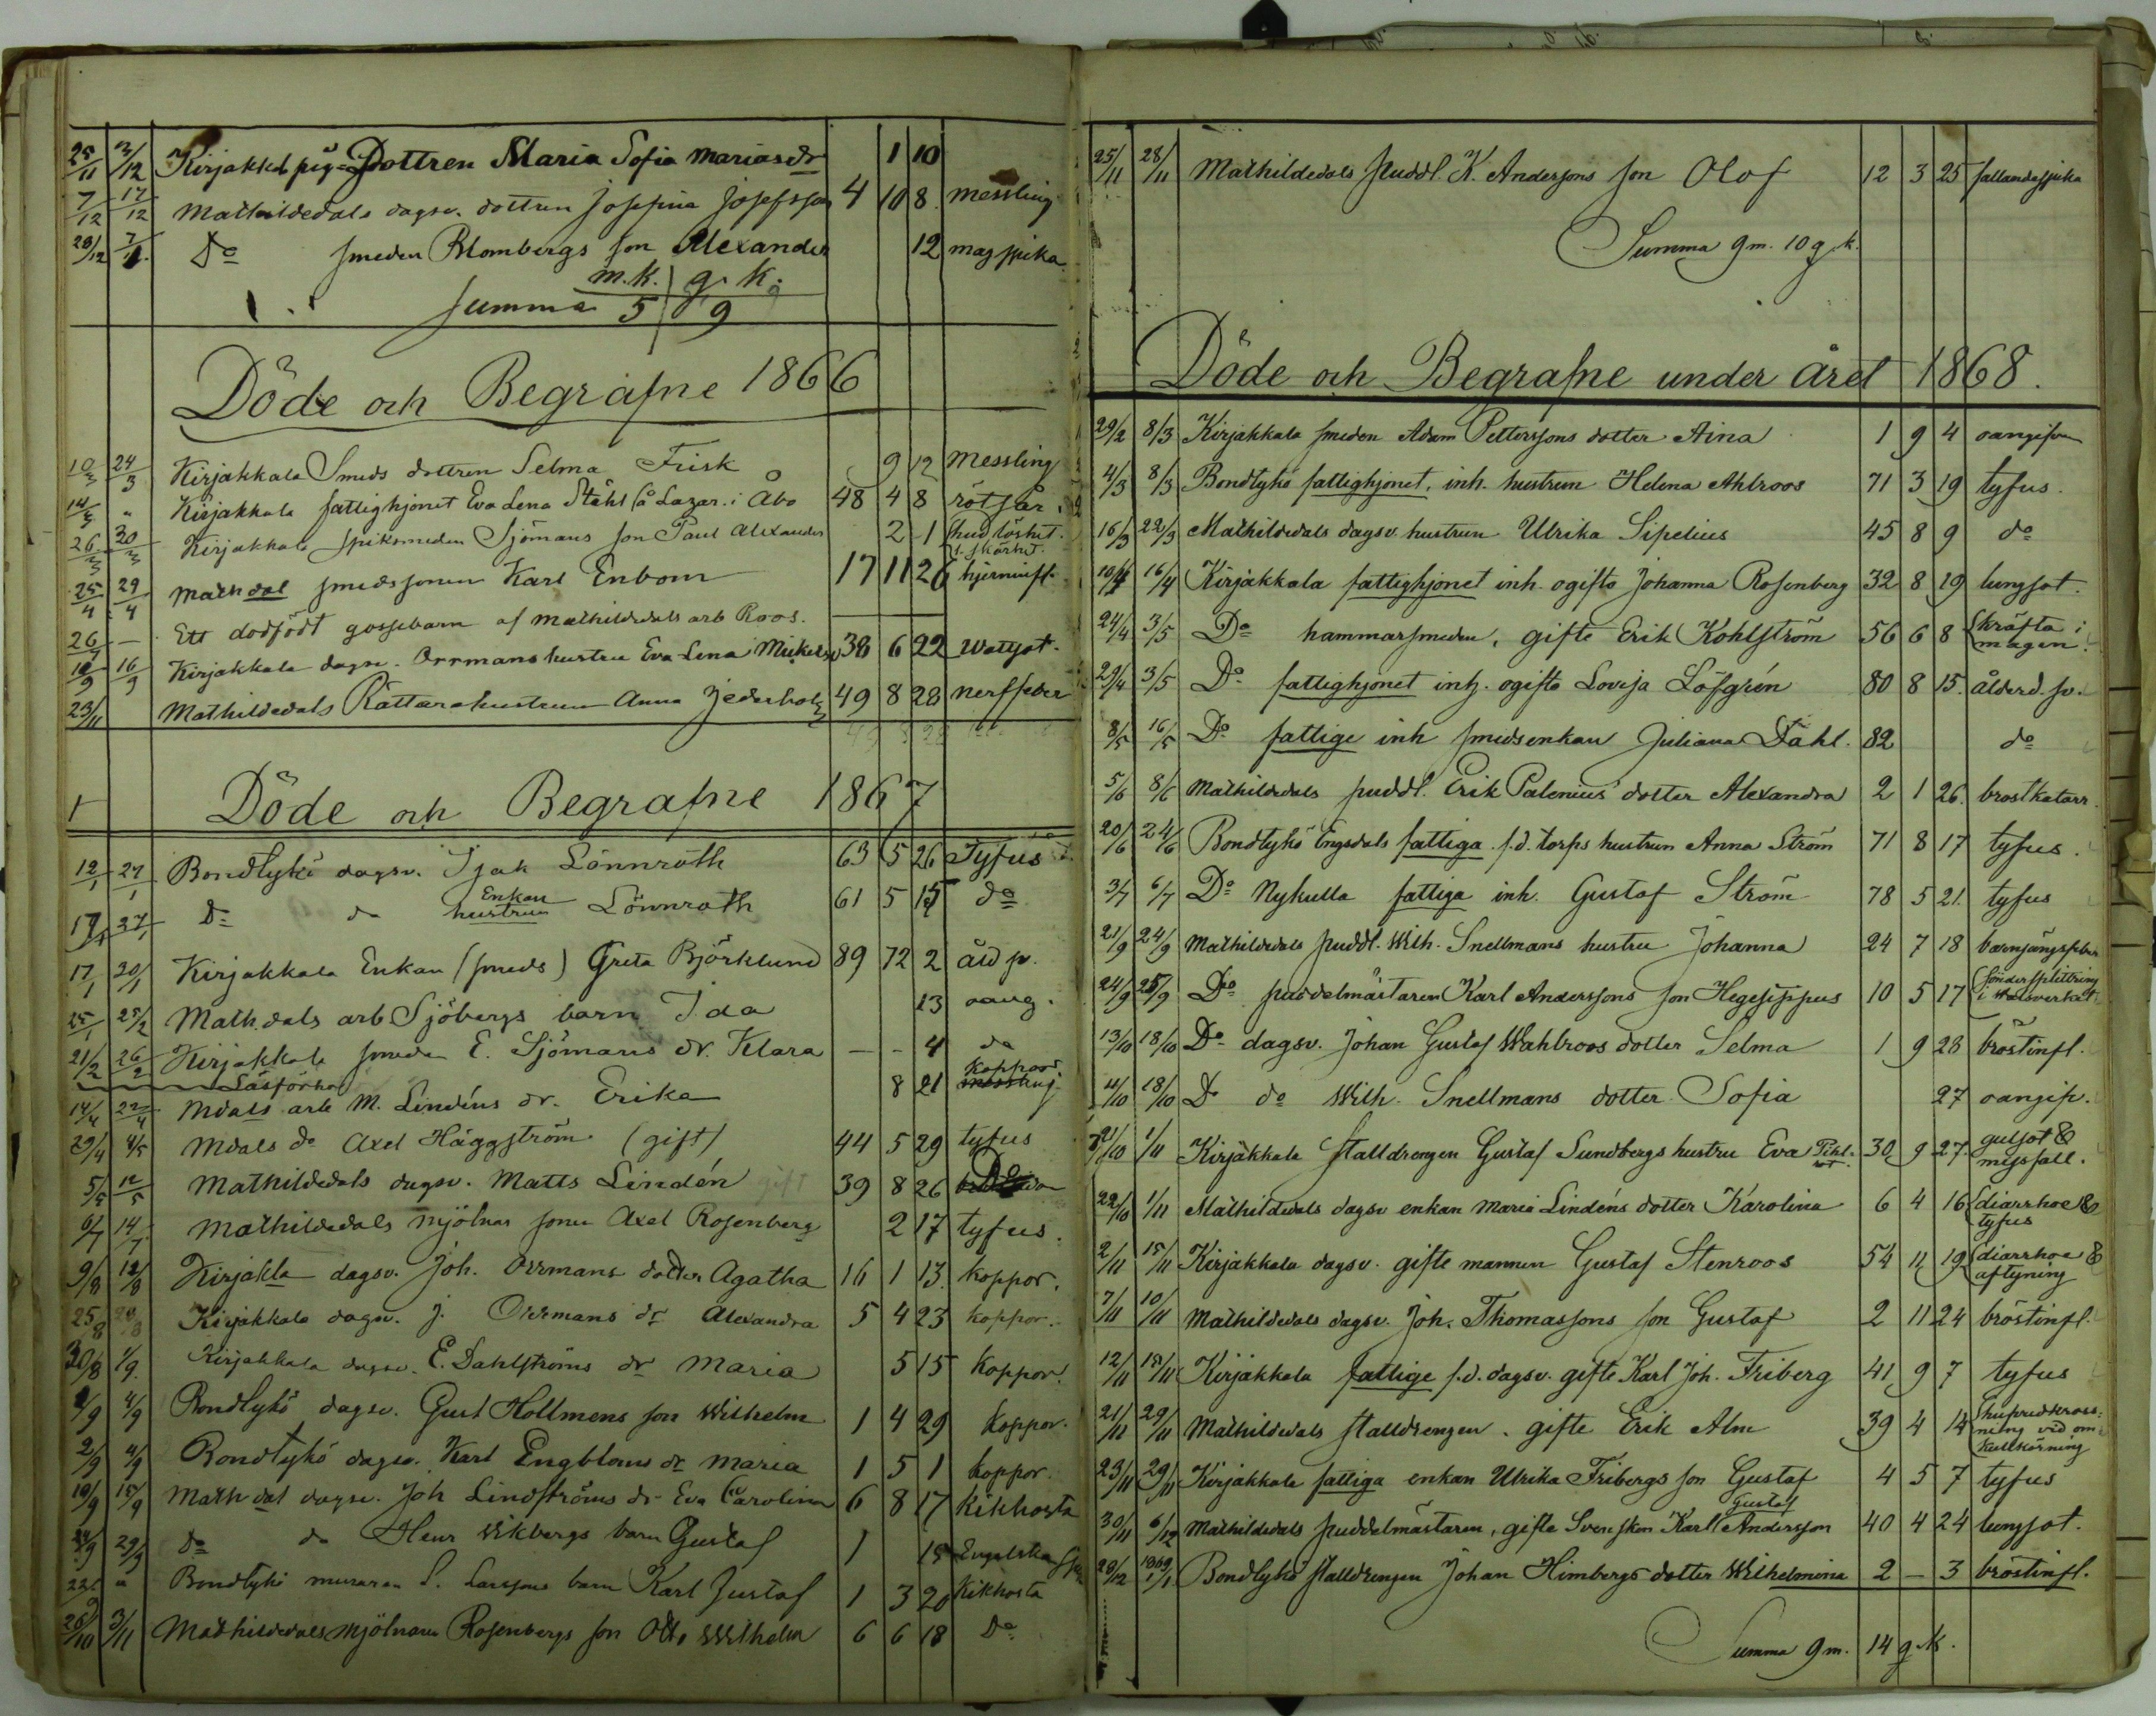 25/11 3/12 Kirjakkala pig. Dottren Maria Sofia Mariasdr 1 10
7/12 17/12 Mathildedals dagsv. dottren Josefina Josefsson 4 10 8 messling
28/12 7/1 Do smeden Blombergs son Alexander 12 magsjuka
m.k. g.k.
summa 5 9
Döde och Begrafne 1866
10/3 24/3 Kirjakkala Smeds dottren Selma Frisk 9 12 Messling
14/3 " Kirjakkala fattighjonet Eva Lena Ståhl (å Lazar. i Åbo 48 4 8 rötsår
26/3 30/3 Kirjakkala spiksmeden Sjömans son Paul Alexander 2 1 hudlöshet.
f. skörhet.
25/4 29/4 Math dal smedssonen Karl Enbom 17 11 26 hjerninfl.
26 — Ett dödfödt gossebarn af Mathildedals arb Roos.
10/9 16/9 Kirjakkala dagsv. Orrmans hustru Eva Lena 38 6 22 Wattsot.
23/11 Mathildedals Rättarehustrun Anna Jederholm 49 8 28 nerffeber
Döde och Begrafne 1867
12/1 27/1 Bondtykö dagsv. Isak Lönnroth 63 5 26 Tyfus
Enkan
17/1 27/1 Do do hustrun Lönnroth 61 5 15 do
17/1 20/1 Kirjakkala Enkan (smeds) Greta Björklund 89 12 2 åld sv.
25/1 25/2 Math.dals arb Sjöbergs barn Ida 13 oang.
21/2 26/2 Kirjakkala smeden E. Sjömans dr. Klara — - 4 do
Läsförhör koppor
14/4 22/4 Mdals arb M. Lindéns dr. Erika 8 21 messling
29/4 4/5 Mdals do Axel Häggström (gift) 44 5 29 tyfus
5/5 12/5 Mathildedals dagsv. Matts Lindén gift 39 8 26 Do
6/7 14/7 Mathildedals mjölnar sonen Axel Rosenberg 2 17 tyfus.
9/8 12/8 Kirjakla dagsv. Joh. Orrmans dotter Agatha 16 1 13 koppor.
25/8 Kirjakkala dagsv. J. Orrmans dr Alexandra 5 4 23 koppor.
30/8 1/9 Kirjakkala dagsv. E. Dahlströms dr Maria 5 15 koppor.
2/9 4/9 Bondtykö dagsv. Gust Hollmens son Wilhelm 1 4 29 koppor.
2/9 4/9 Bondtykö dagsv. Karl Engbloms dr Maria 1 5 1 koppor.
10/9 15/9 Math dal dagsv. Joh Lindströms dr Eva Carolina 6 8 17 Kikhosta
24/9 29/9 do do Henr Wikbergs barn Gustaf 1 15 Engelska sju
22 " Bondtykö muraren S. Larssons barn Karl Gustaf 1 3 20 Kikhosta
26/10 3/11 Mathildedals mjölnaren Rosenbergs son Otto Wilhelm 6 6 18 Do
25/11 28/11 Mathildedals puddl. K. Anderssons son Olof 12 3 25 fallandesjuka
Summa 9 m. 10 q.k.
Döde och Begrafne under året 1868.
29/2 8/3 Kirjakkala smeden Adam Petterssons dotter Aina 1 9 4 oangifven
4/3 8/3 Bondtykö fattighjonet, inh. hustrun Helena Ahlroos 71 3 19 tyfus.
16/3 22/3 Mathildedals dagsv. hustrun Ulrika Sipelius 45 8 9 do
10/4 16/4 Kirjakkala fattighjonet inh. ogifta Johanna Rosenberg 32 8 19 lungsot.
24/4 3/5 Do hammarsmeden, gifte Erik Kohlström 56 6 8 kräfta i
magen.
29/4 3/5 Do fattighjonet inh. ogifta Lovisa Löfgrén 80 8 15 ålderd. sv.
8/5 16/5 Do fattige inh smedsenkan Juliana Dahl. 82 do
5/6 8/6 Mathildedals puddl. Erik Palenius dotter Alexandra 2 1 26. bröstkatarr.
20/6 24/6 Bondtykö Engsdals fattiga f.d. torps hustrun Anna Ström 71 8 17 tyfus.
3/7 6/7 Do Nykulla fattiga inh. Gustaf Ström 78 5 21. tyfus
21/9 24/9 Mathildedals puddl. Wilh. Snellmans hustru Johanna 24 7 18 barnsängsfeber
24/9 25/9 Do puddelmästaren Karl Anderssons son Hegesippus 10 5 17 Sönderspl​ittring
i Walsverket.
13/10 18/10 Do dagsv. Johan Gustaf Wahlroos dotter Selma 1 9 28 bröstinfl.
11/10 18/10 Do do Wilh. Snellmans dotter Sofia 27 oangif.
21/10 1/11 Kirjakkala stalldrengen Gustaf Sundbergs hustru Eva 30 9 27. gulsot &
missfall.
22/10 1/11 Mathildedals dagsv enkan Maria Lindéns dotter Karolina 6 4 16 diarrhoe &
tyfus
2/11 15/11 Kirjakkala dagsv. gifte mannen Gustaf Stenroos 54 11 19 diarrhoe &
aftyning
7/11 10/11 Mathildedals dagsv. Joh. Thomassons son Gustaf 2 11 24 bröstinfl.
12/11 15/11 Kirjakkala fattige f.d. dagsv. gifte Karl Joh. Friberg 41 9 7 tyfus
21/11 29/11 Mathildedals stalldrengen. gifte Erik Alm 39 4 14 hufvudkross-
ning vid om-
kullkörning
23/11 29/11 Kirjakkala fattiga enkan Ulrika Fribergs son Gustaf 4 5 7 tyfus
Gustaf
30/11 6/12 Mathildedals puddelmästaren, gifte Svensken Karl Andersson 40 4 24 lungsot.
29/12 1869 1/1 Bondtykö stalldrengen Johan Himbergs dotter Wilhelmina 2 — 3 bröstinfl.
Summa 9 m. 14 q.k.